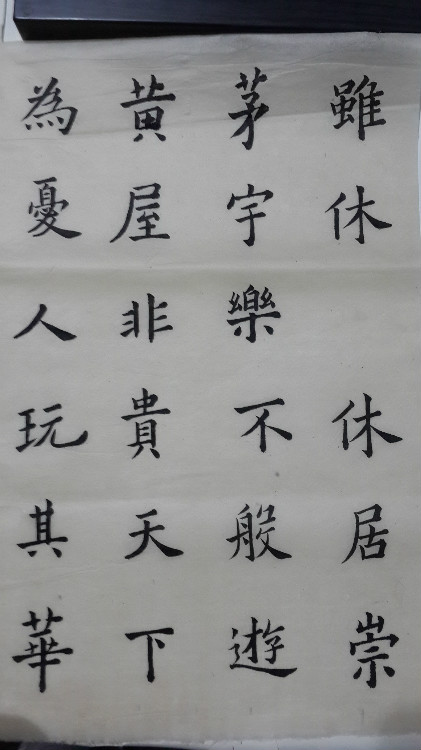 雖休 休居崇
茅宇樂不般遊
黄屋非貴天下
為憂人玩其華